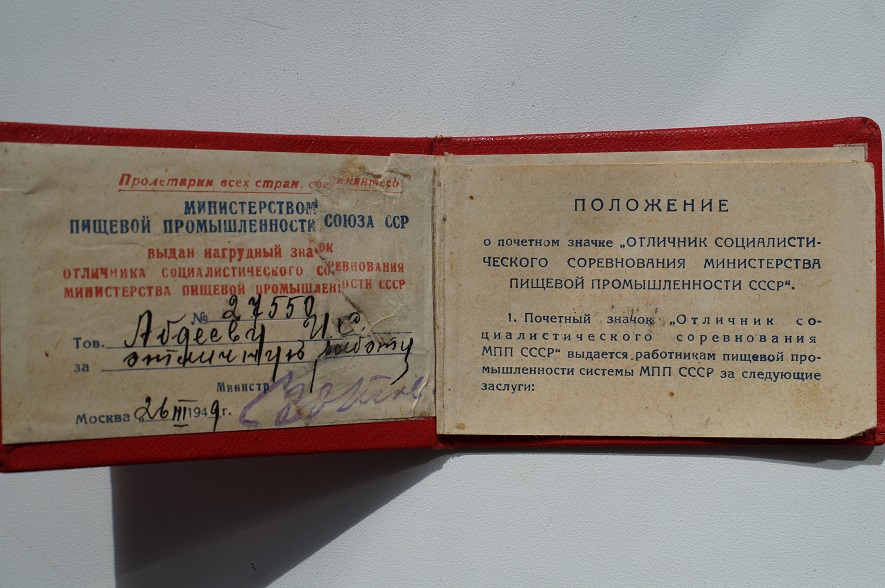 Пролетарии всех стран, соединяйтесь
МИНИСТЕРСТВОМ
ПИЩЕВОЙ ПРОМЫШЛЕННОСТИ СОЮЗА ССР
выдан нагрудный значок
ОТЛИЧНИКА СОЦИАЛИСТИЧЕСКОГО СОРЕВНОВАНИЯ
МИНИСТЕРСТВА ПИЩЕВОЙ ПРОМЫШЛЕННОСТИ СССР
№ 27550
Тов. Абдееву И.С.
за отличную работу
Министр
Москва 26 III 1949 г.
ПОЛОЖЕНИЕ
о почетном значке „ОТЛИЧНИК СОЦИАЛИСТИ-
ЧЕСКОГО СОРЕВНОВАНИЯ МИНИСТЕРСТВА
ПИЩЕВОЙ ПРОМЫШЛЕННОСТИ СССР“.
1. Почетный значок „Отличник со-
циалистического соревнования
МПП СССР“ выдается работникам пищевой про-
мышленности системы МПП СССР за следующие
заслуги: